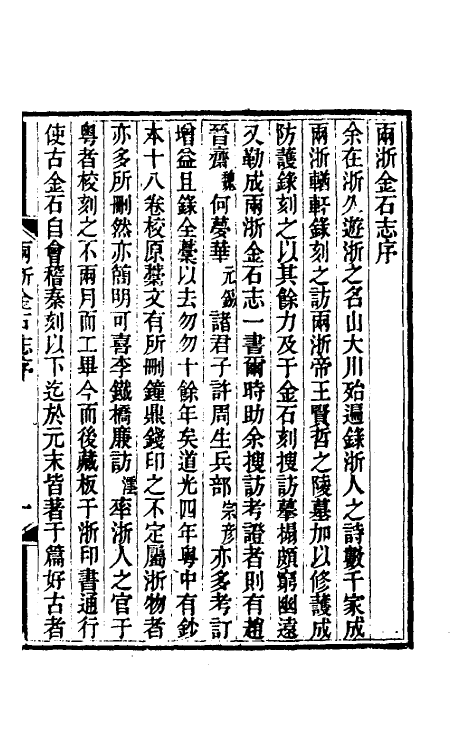 兩浙金石志序
余在浙久遊浙之名山大川殆遍錄浙人之詩數千家成
兩浙輶軒錄刻之訪兩浙帝王賢哲之陵墓加以修護成
防護錄刻之以其餘力及于金石刻搜訪摹搨頗窮幽遠
又勒成兩浙金石志一書爾時助余搜訪考證者則有趙
晉齋魏何夢華元錫諸君子許周生兵部宗彥亦多考訂
增益且錄全藁以去勿勿十餘年矣道光四年粵中有鈔
本十八卷校原藁文有所刪鐘鼎錢印之不定屬浙物者
亦多所刪然亦簡明可喜李鐵橋廉訪澐率浙人之官于
粵者校刻之不兩月而工畢今而後藏板于浙印書通行
使古金石自會稽秦刻以下迄於元末皆著于篇好古者
兩浙金石志序
一